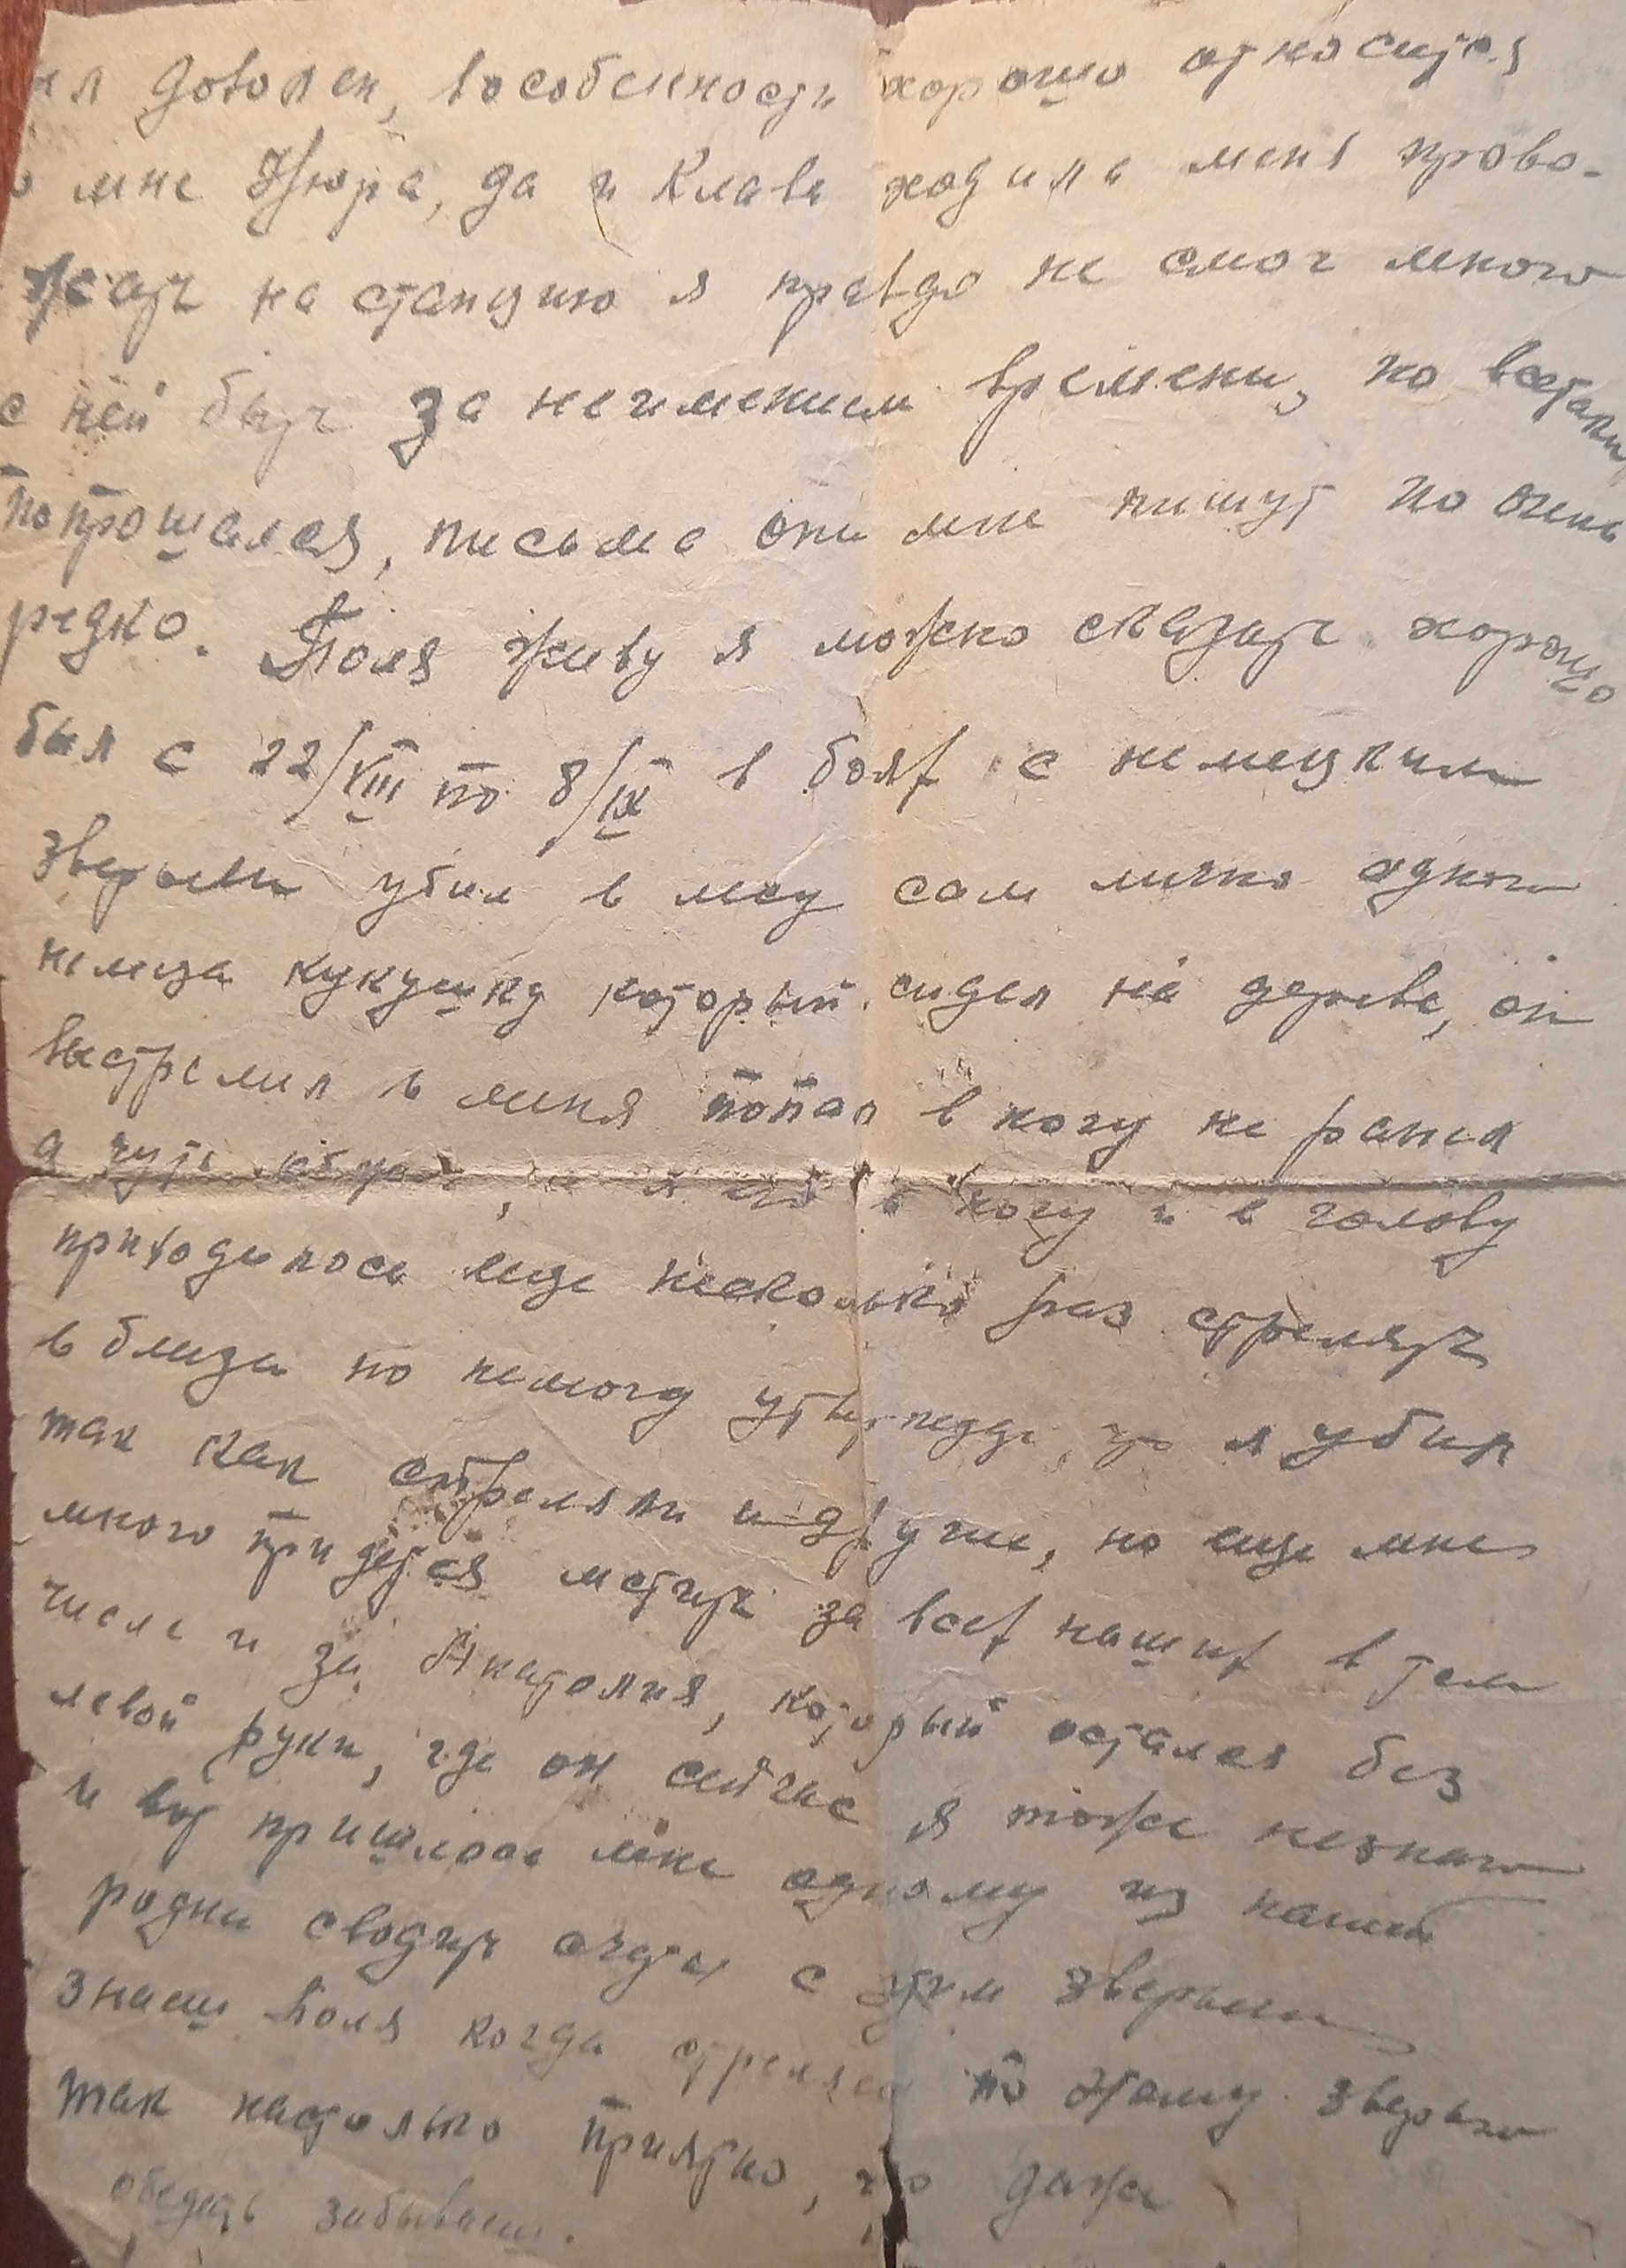 ил доволен, в особенности хорошо относится
о мне Нюра, да и Клава ходила меня прово-
жать на станцию я правдо не смог много
с ней быть за неимением времени, но всетаки
попрощался, письма они мне пишут но очень
редко. Поля живу я можно сказать хорошо
был с 22/VIII по 8/IX в боях с немецким
зверьем убил в лесу сам лично одного
немца кукушку который сидел на дереве, он
выстрелил в меня попал в ногу не ранил
а чуть, а я его в ногу и в голову
приходилось еще несколько раз стрелять
в близи но немогу утверждать, что я убил
так как стреляли и другие, но еще мне
много придется мстить за всех наших в том
числе и за Анатолия, который остался без
левой руки, где он сейчас я тоже незнаю
и вот пришлось мне одному из нашей
родни сводить счеты с этим зверьем
знаеш Поля когда стреляеш по этому зверью
так настолько приятно, что даже
обедать забываеш.